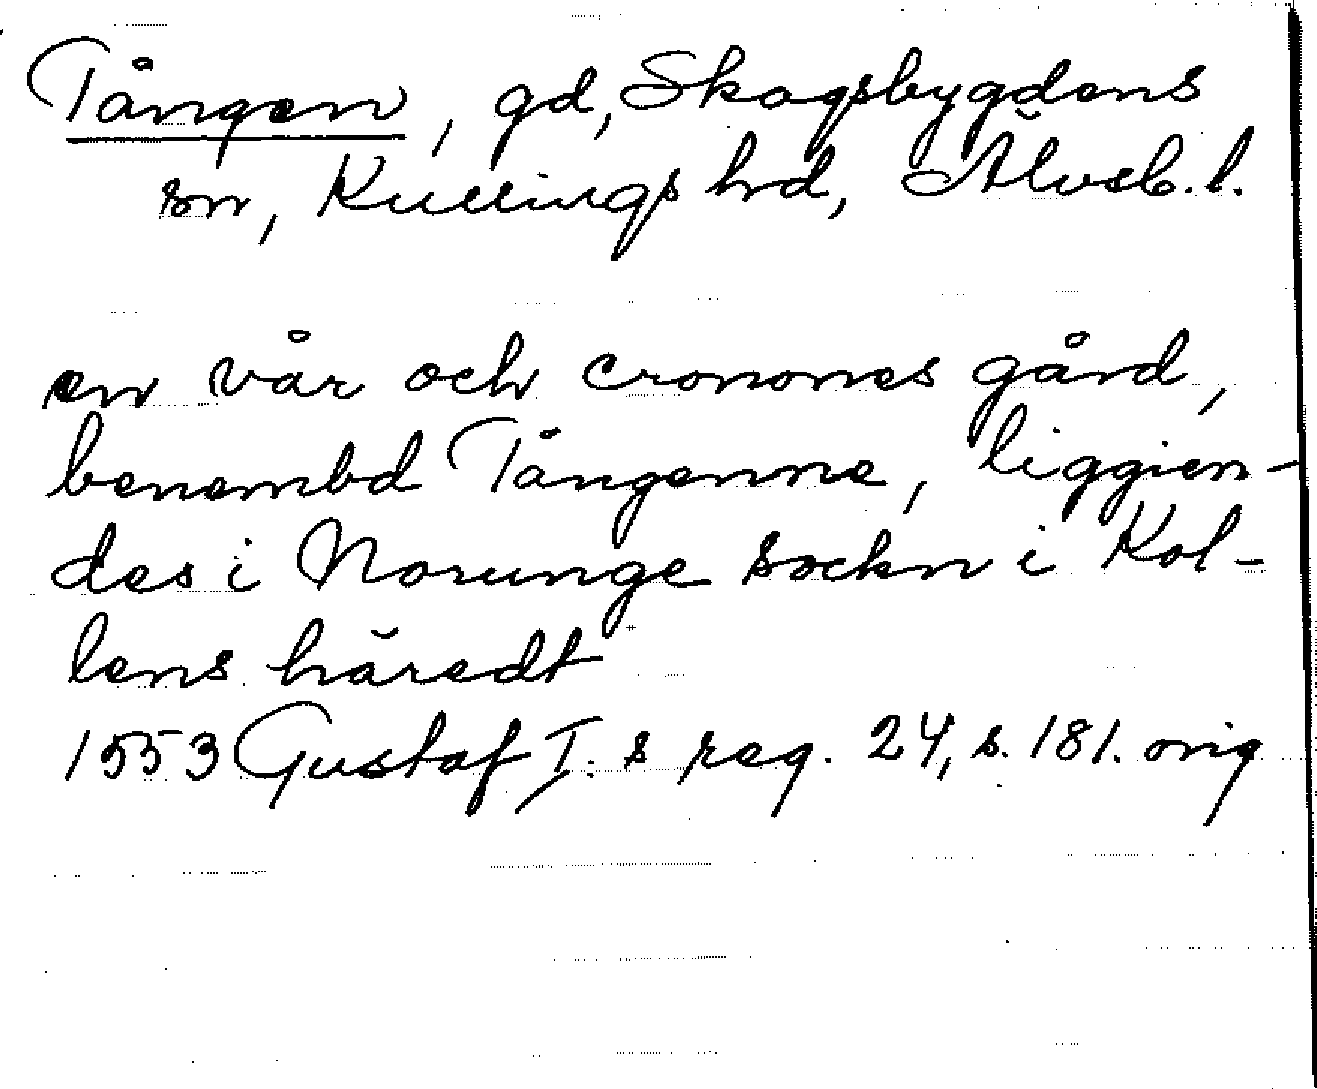 Tången, gd, Skogsbygdens
sn, Kullings hd, Älvsb. l.
en vår och cronones gård,
benembd Tångenne, liggien-
des i Norunge sockn i Kol-
lens häredt
1553 Gustaf I. s reg. 24, s. 181. orig